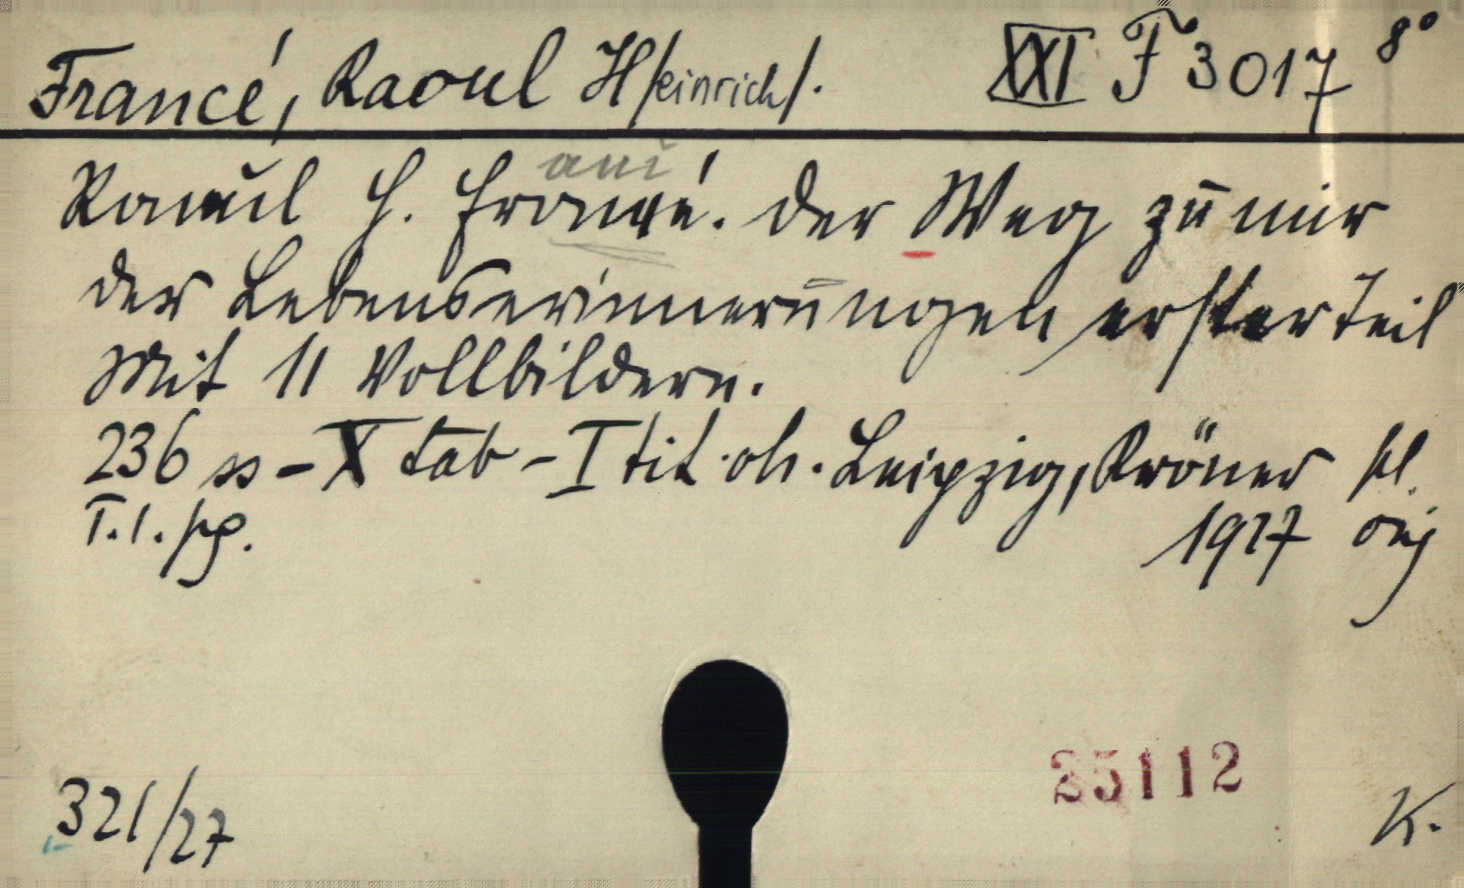 Francé, Raoul H/einrich/. XXI F 3017 8°
Raoul H. Francé. Der Weg zu mir
der Lebenserinnerungen erster Teil
Mit 11 Vollbildern.
236 ss – X tab – I tit. ob. Leipzig, Kröner
T. 1. 1927
321/27 25112 K.